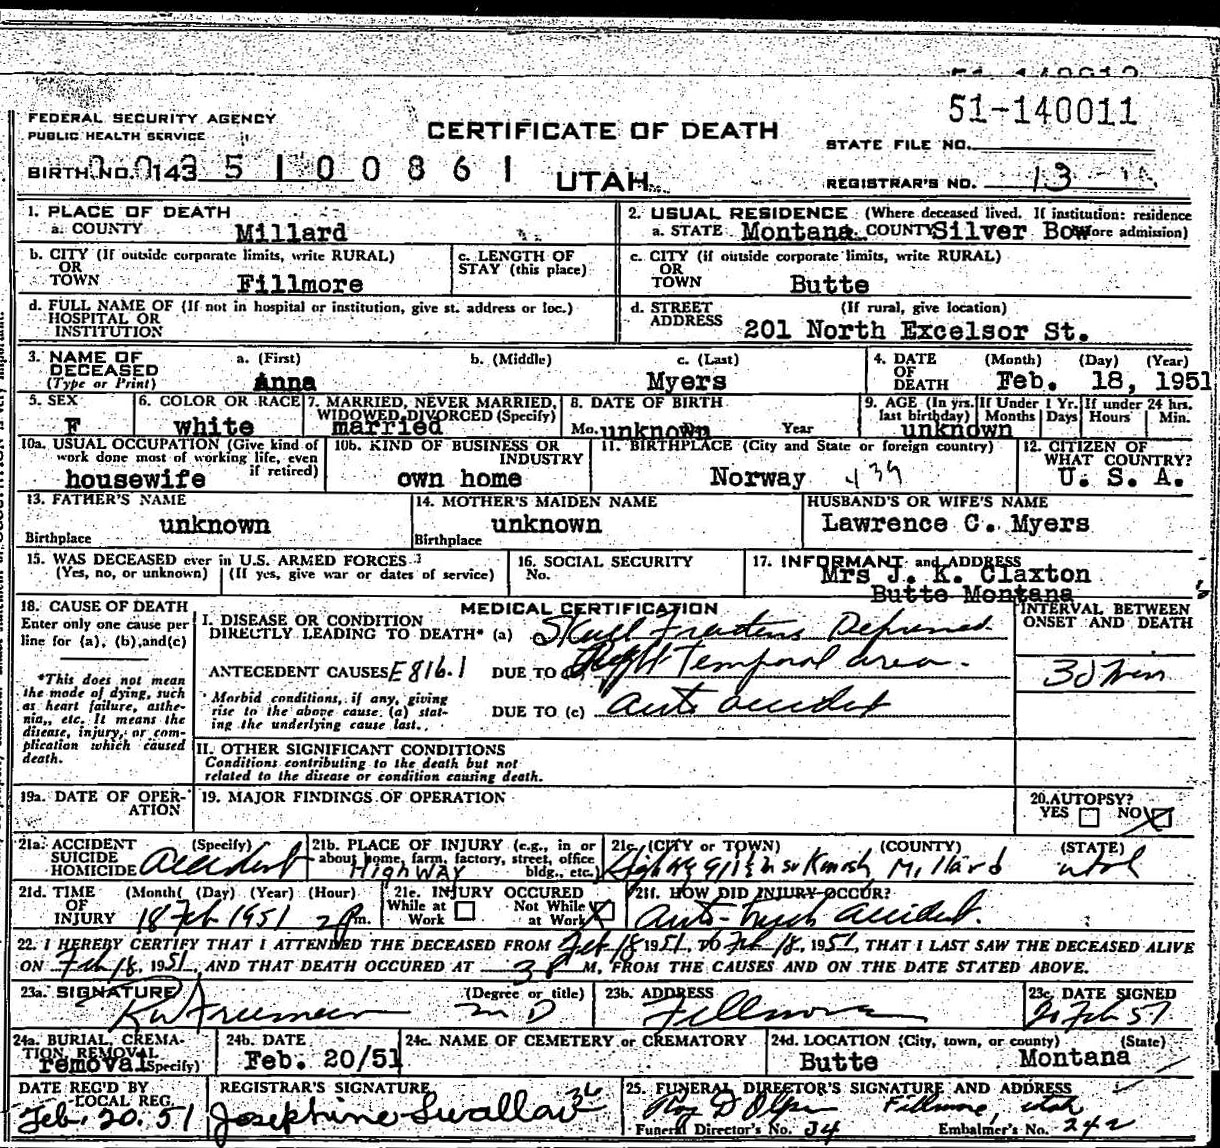 51-140011
FEDERAL SECURITY AGENCY
PUBLIC HEALTH SERVICE
CERTIFICATE OF DEATH
STATE FILE NO.
BIRTH NO. 143 5 1 0 0 8 6 1
UTAH
REGISTRAR'S NO. 13
1. PLACE OF DEATH
a. COUNTY Millard
2. USUAL RESIDENCE (Where deceased lived. If institution: residence
a. STATE Montana COUNTY Silver Bow before admission)
b. CITY (If outside corporate limits, write RURAL)
OR
TOWN Fillmore
c. LENGTH OF
STAY (this place)
c. CITY (if outside corporate limits, write RURAL)
OR
TOWN Butte
d. FULL NAME OF (If not in hospital or institution, give st. address or loc.)
HOSPITAL OR
INSTITUTION
d. STREET (If rural, give location)
ADDRESS 201 North Excelsor St.
3. NAME OF DECEASED
(Type or Print)
a. (First) Anna
b. (Middle)
c. (Last) Myers
4. DATE OF DEATH (Month) (Day) (Year)
Feb. 18, 1951
5. SEX F
6. COLOR OR RACE white
7. MARRIED, NEVER MARRIED,
WIDOWED DIVORCED (Specify)
married
8. DATE OF BIRTH
Mo. unknown Year
9. AGE (In yrs. last birthday) unknown
If Under 1 Yr. Months Days
If under 24 hrs. Hours Min.
10a. USUAL OCCUPATION (Give kind of
work done most of working life, even
if retired)
housewife
10b. KIND OF BUSINESS OR
INDUSTRY
own home
11. BIRTHPLACE (City and State or foreign country)
Norway 439
12. CITIZEN OF
WHAT COUNTRY?
U. S. A.
13. FATHER'S NAME
unknown
Birthplace
14. MOTHER'S MAIDEN NAME
unknown
Birthplace
HUSBAND'S OR WIFE'S NAME
Lawrence C. Myers
15. WAS DECEASED ever in U.S. ARMED FORCES
(Yes, no, or unknown) (If yes, give war or dates of service)
16. SOCIAL SECURITY
No.
17. INFORMANT and ADDRESS
Mrs J. K. Claxton
Butte Montana
18. CAUSE OF DEATH
Enter only one cause per
line for (a), (b), and (c)
*This does not mean
the mode of dying, such
as heart failure, asthe-
nia, etc. It means the
disease, injury, or com-
plication which caused
death.
MEDICAL CERTIFICATION
I. DISEASE OR CONDITION
DIRECTLY LEADING TO DEATH* (a) Skull Fractures Depressed
ANTECEDENT CAUSES E816.1 DUE TO (b) Right temporal area.
Morbid conditions, if any, giving
rise to the above cause (a) stat-
ing the underlying cause last.
DUE TO (c) auto accident
INTERVAL BETWEEN
ONSET AND DEATH
30 min
II. OTHER SIGNIFICANT CONDITIONS
Conditions contributing to the death but not
related to the disease or condition causing death.
19a. DATE OF OPER-
ATION
19. MAJOR FINDINGS OF OPERATION
20. AUTOPSY?
YES NO
21a. ACCIDENT (Specify)
SUICIDE
HOMICIDE accident
21b. PLACE OF INJURY (e.g., in or
about home, farm, factory, street, office
bldg., etc.)
HIGHWAY
21c. (CITY or TOWN) (COUNTY) (STATE)
Highway 91 Millard Utah
21d. TIME (Month) (Day) (Year) (Hour)
OF
INJURY 18 Feb 1951 2 pm.
21e. INJURY OCCURED
While at Work Not While at Work
21f. HOW DID INJURY OCCUR?
Auto-truck accident.
22. I HEREBY CERTIFY THAT I ATTENDED THE DECEASED FROM Feb 18 1951, TO Feb 18, 1951, THAT I LAST SAW THE DECEASED ALIVE
ON Feb 18, 1951, AND THAT DEATH OCCURED AT 3 P M, FROM THE CAUSES AND ON THE DATE STATED ABOVE.
23a. SIGNATURE (Degree or title)
Freeman M D
23b. ADDRESS
Fillmore
23c. DATE SIGNED
20 Feb 51
24a. BURIAL, CREMA-
TION, REMOVAL
(Specify) removal
24b. DATE
Feb. 20/51
24c. NAME OF CEMETERY or CREMATORY
24d. LOCATION (City, town, or county) (State)
Butte Montana
DATE REC'D BY
LOCAL REG.
Feb. 20. 51
REGISTRAR'S SIGNATURE
Josephine Swallow
25. FUNERAL DIRECTOR'S SIGNATURE AND ADDRESS
Roy D Olpin Fillmore, Utah
Funeral Director's No. 34 Embalmer's No. 242